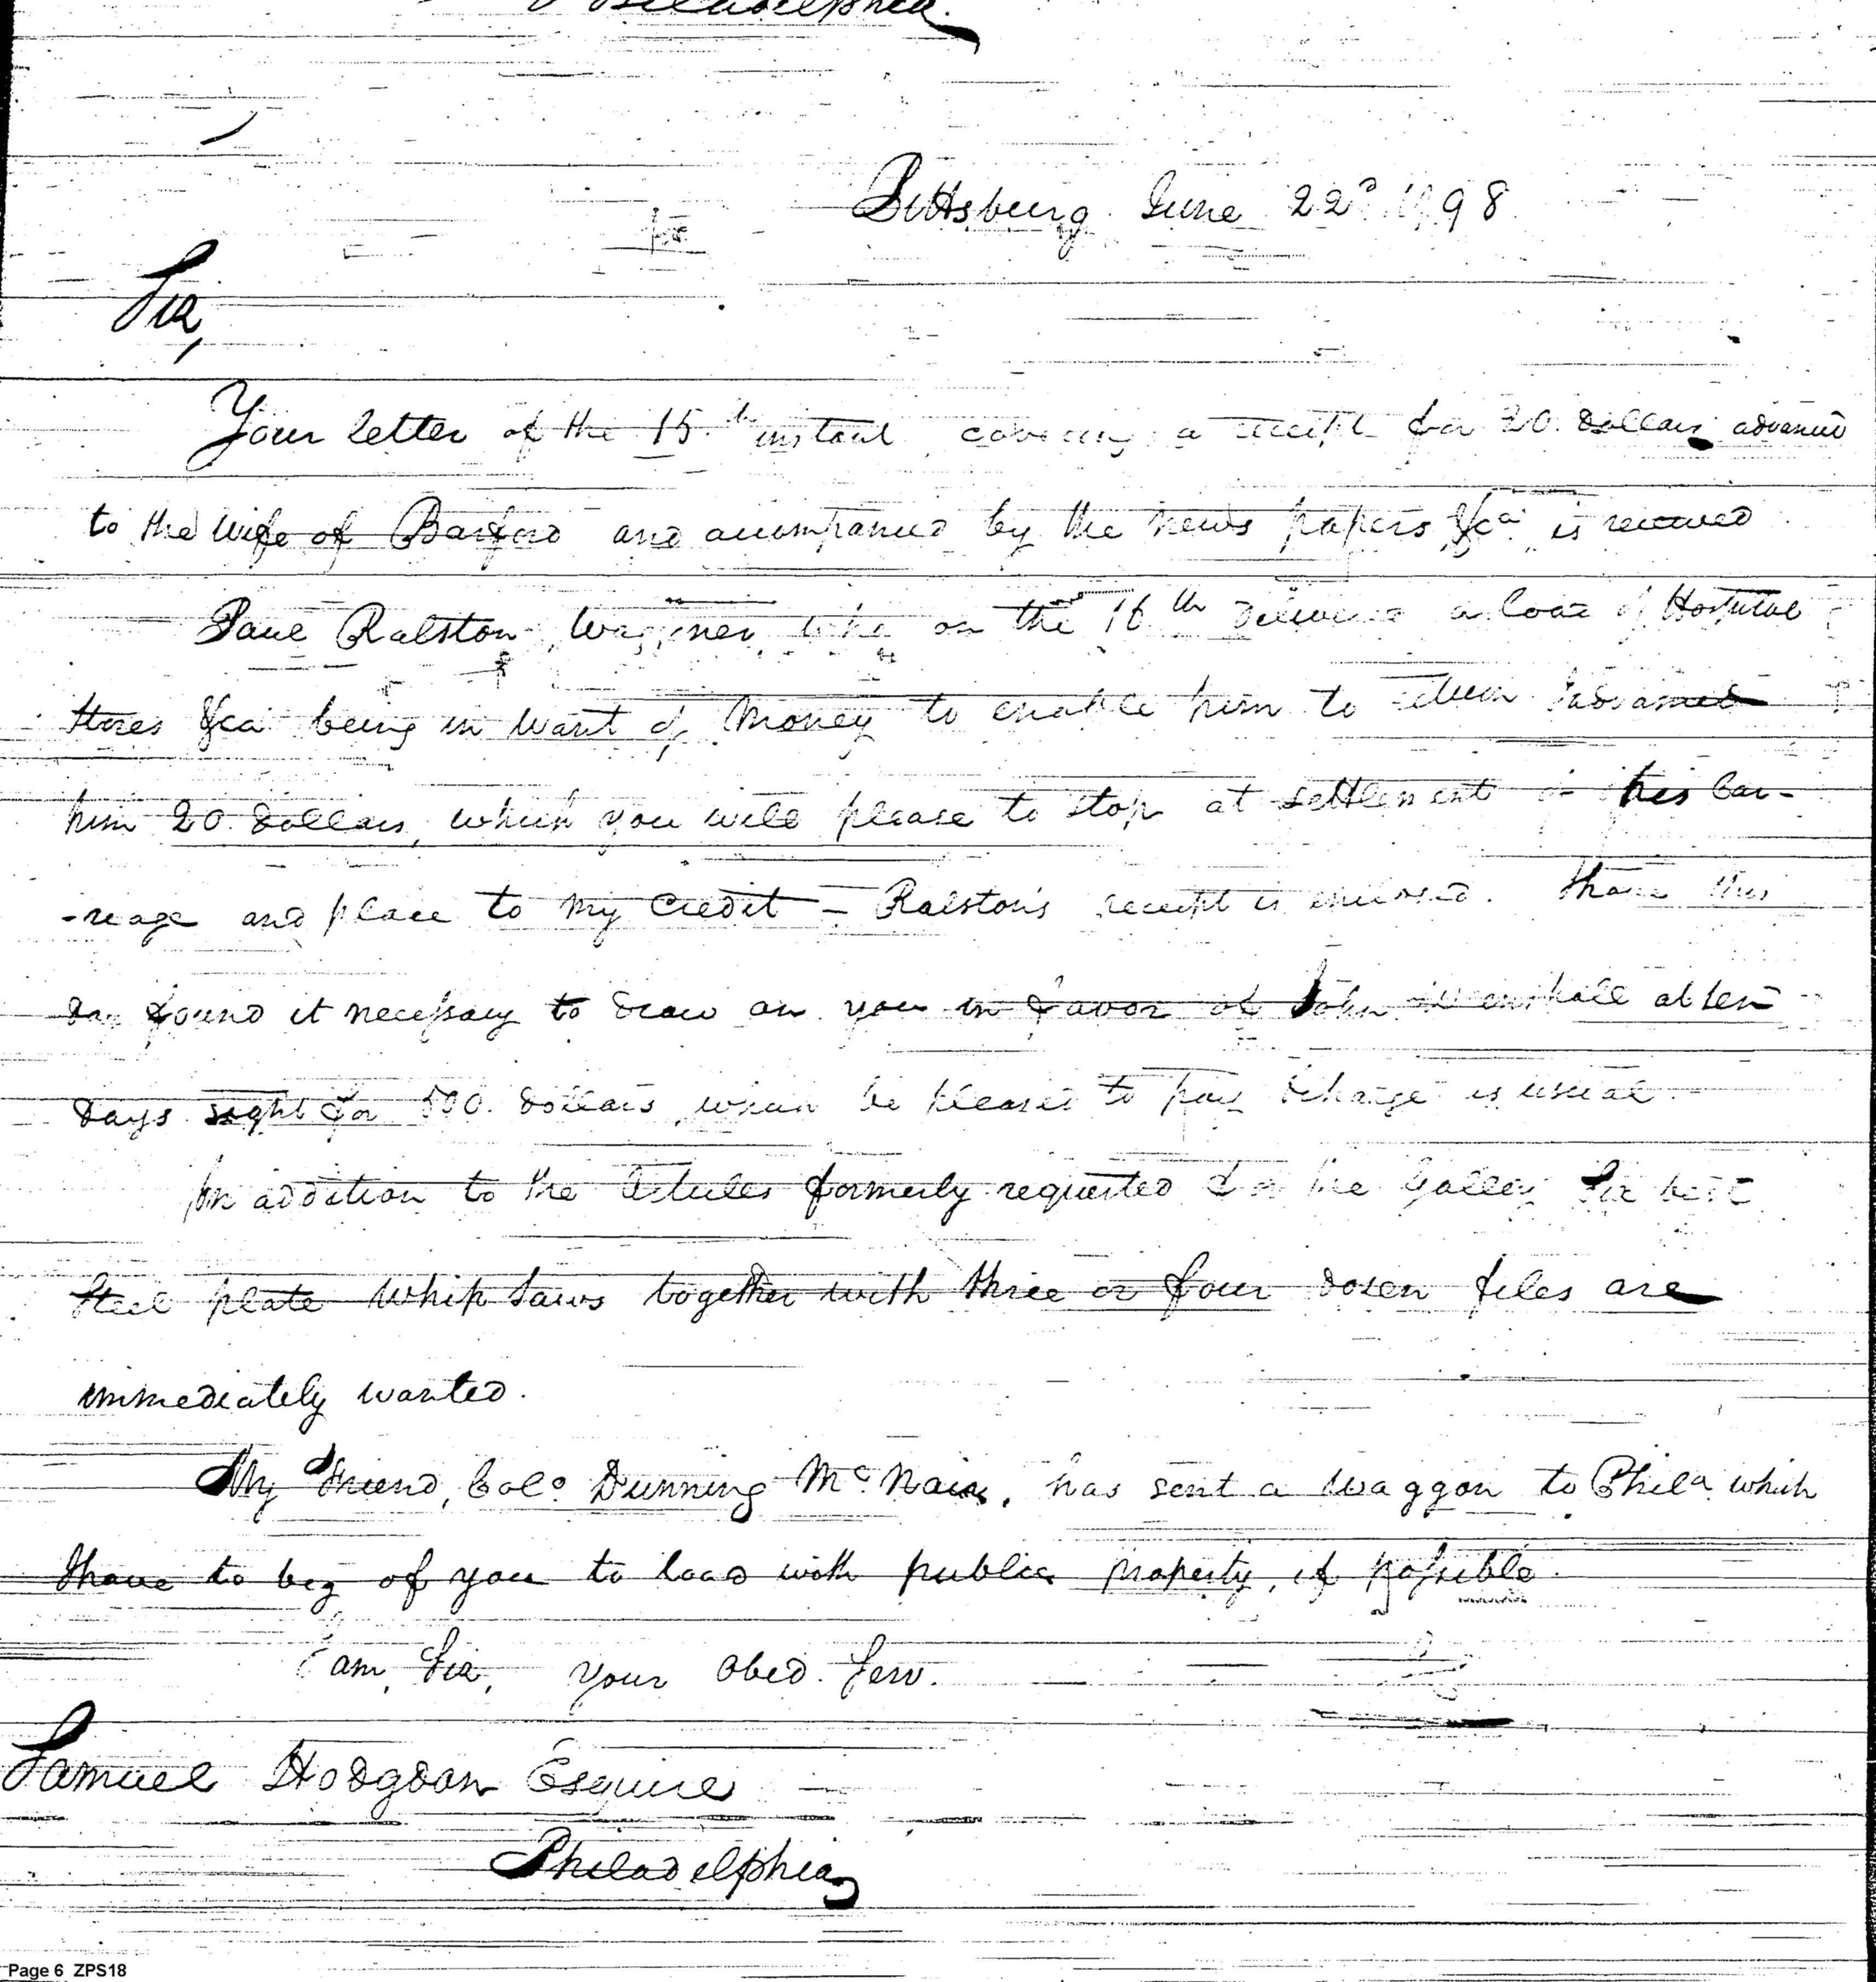 Philadelphia.
Pittsburg June 22d 1798
Sir,
Your letter of the 15th instant covering a receipt for 20 dollars advanced
to the wife of and accompanied by the news papers &ca is received
Paul Ralston Waggoner who on the 16th delivered a load of Hospital
Stores &ca being in want of money to enable him to return I advanced
him 20 dollars, which you will please to stop at settlement of his Car-
-riage and place to my Credit - Ralston's receipt is enclosed. I have this
day found it necessary to draw on you in favor of John at ten
days sight for 500 dollars which be pleased to pay & charge as usual
In addition to the Articles formerly requested for the Galley Six best
Steel plate whip Saws together with three or four dozen files are
immediately wanted.
My Friend, Colo. Dunning McNair, has sent a waggon to Phila which
I have to beg of you to load with public property, if possible.
I am, Sir, your Obed. Serv.
Samuel Hodgdon Esquire
Philadelphia
Page 6 ZPS18